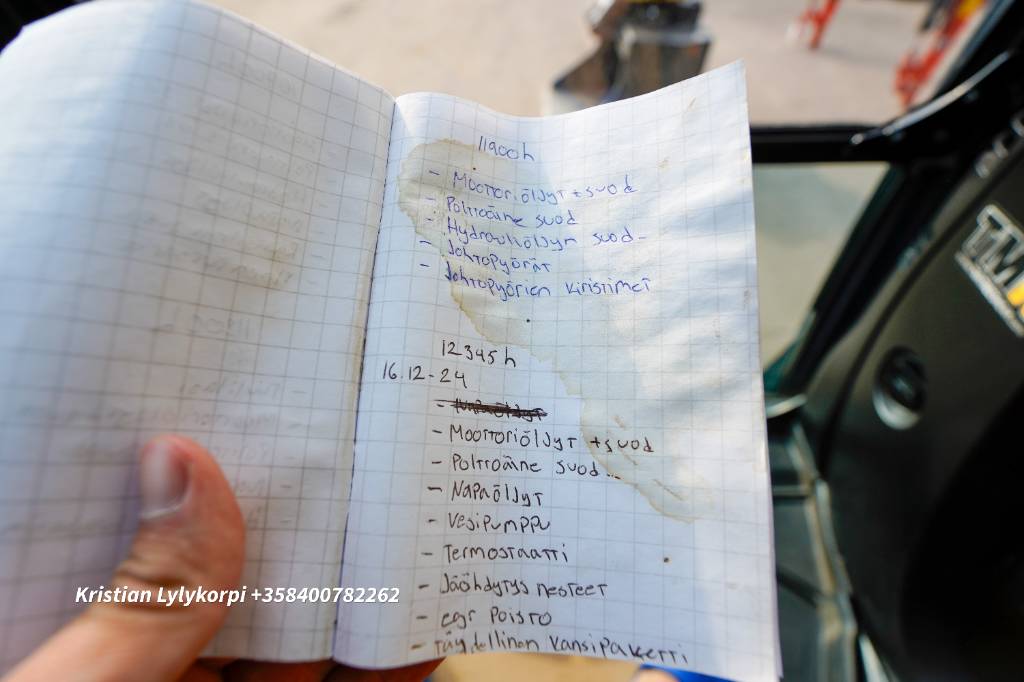 11900h
- Moottoriöljyt + suod
- Polttoaine suod
- Hydrauliöljyn suod-
- Johtopyörät
- Johtopyörien kiristimet
12345h
16.12-24
- Moottoriöljyt + suod
- Polttoaine suod...
- Napaöljyt
- Vesipumppu
- Termostaatti
- Jäähdytys nesteet
- egr Poisto
- täydellinen kansipaketti
Kristian Lylykorpi +358400782262